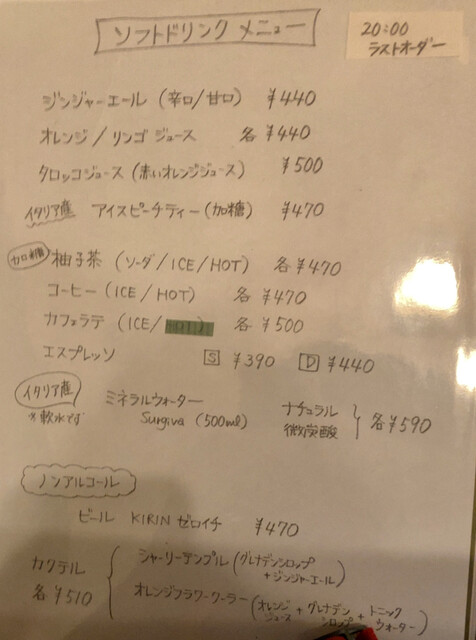 ソフトドリンク メニュー
20:00
ラストオーダー
ジンジャーエール (辛口/甘口) ¥440
オレンジ/リンゴ ジュース 各 ¥440
タロッコジュース (赤いオレンジジュース) ¥500
イタリア産 アイスピーチティー (加糖) ¥470
加糖 柚子茶 (ソーダ/ICE/HOT) 各 ¥470
コーヒー (ICE/HOT) 各 ¥470
カフェラテ (ICE/HOT) 各 ¥500
エスプレッソ S ¥390 D ¥440
イタリア産 ミネラルウォーター
※軟水です Surgiva (500ml)
ナチュラル
微炭酸
各¥590
ノンアルコール
ビール KIRIN ゼロイチ ¥470
カクテル
各¥510
シャーリーテンプル (グレナデンシロップ
+ジンジャーエール)
オレンジフラワークーラー (オレンジジュース + グレナデンシロップ + トニックウォーター)